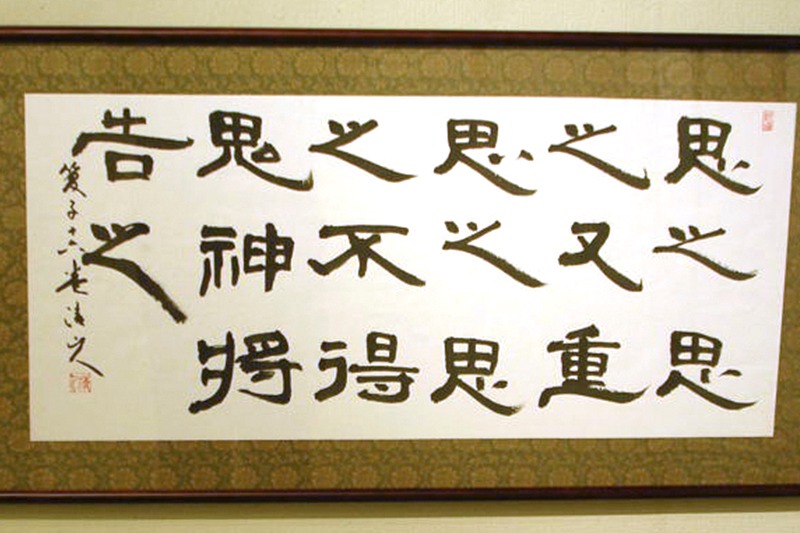 思之思
之又重
思之思
之不得
鬼神將
告之
子十六